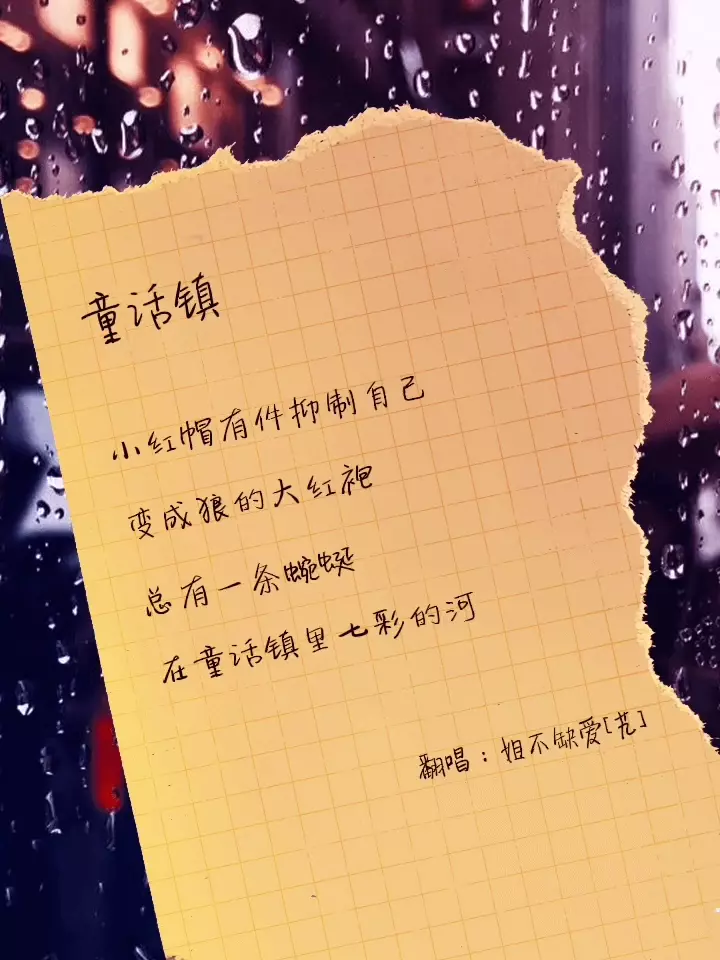 童话镇
小红帽有件抑制自己
变成狼的大红袍
总有一条蜿蜒
在童话镇里七彩的河
翻唱：姐不缺爱[芑]